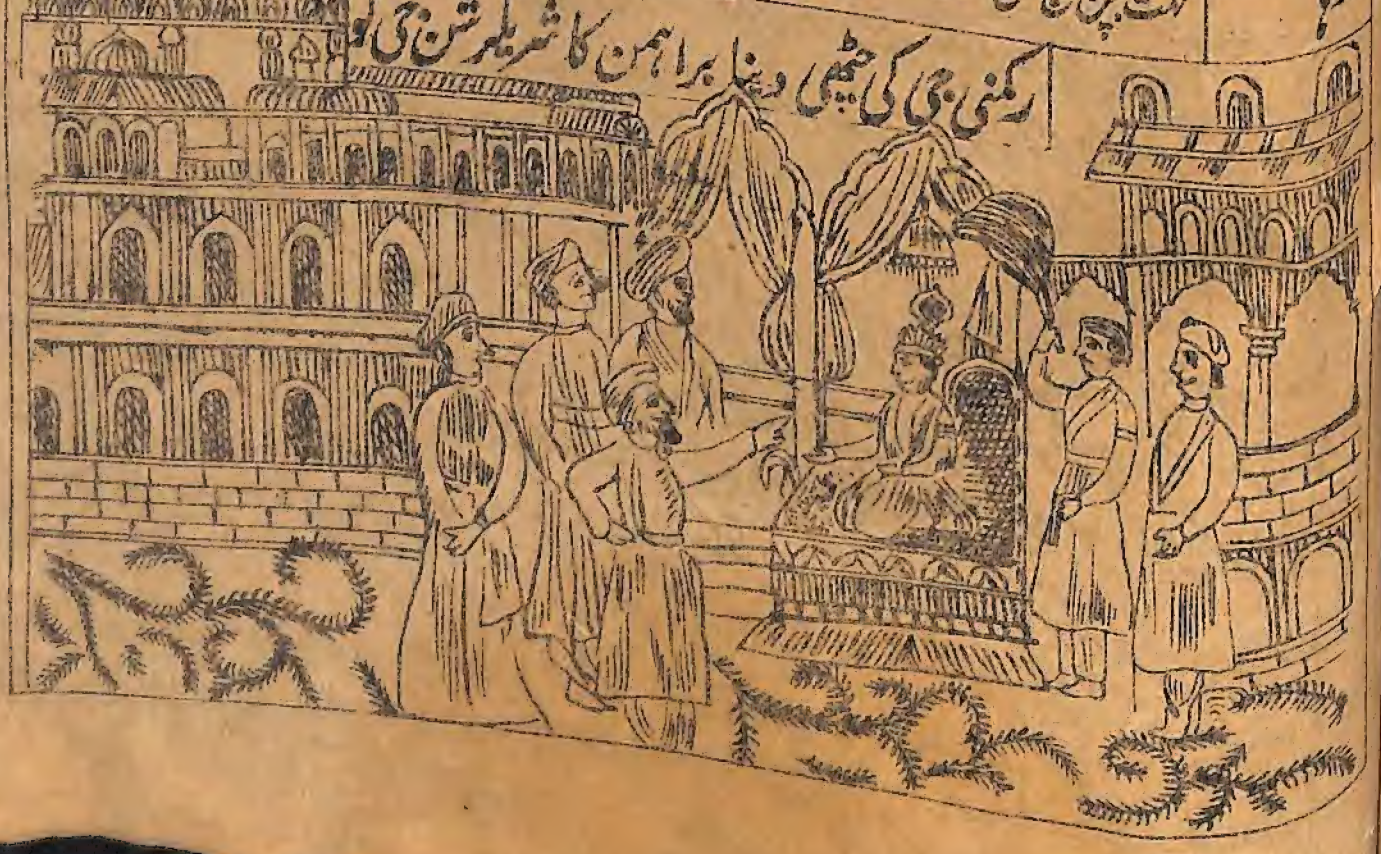 رکمنی جی کی چٹھی دینا براہمن کا شری کرشن جی کو